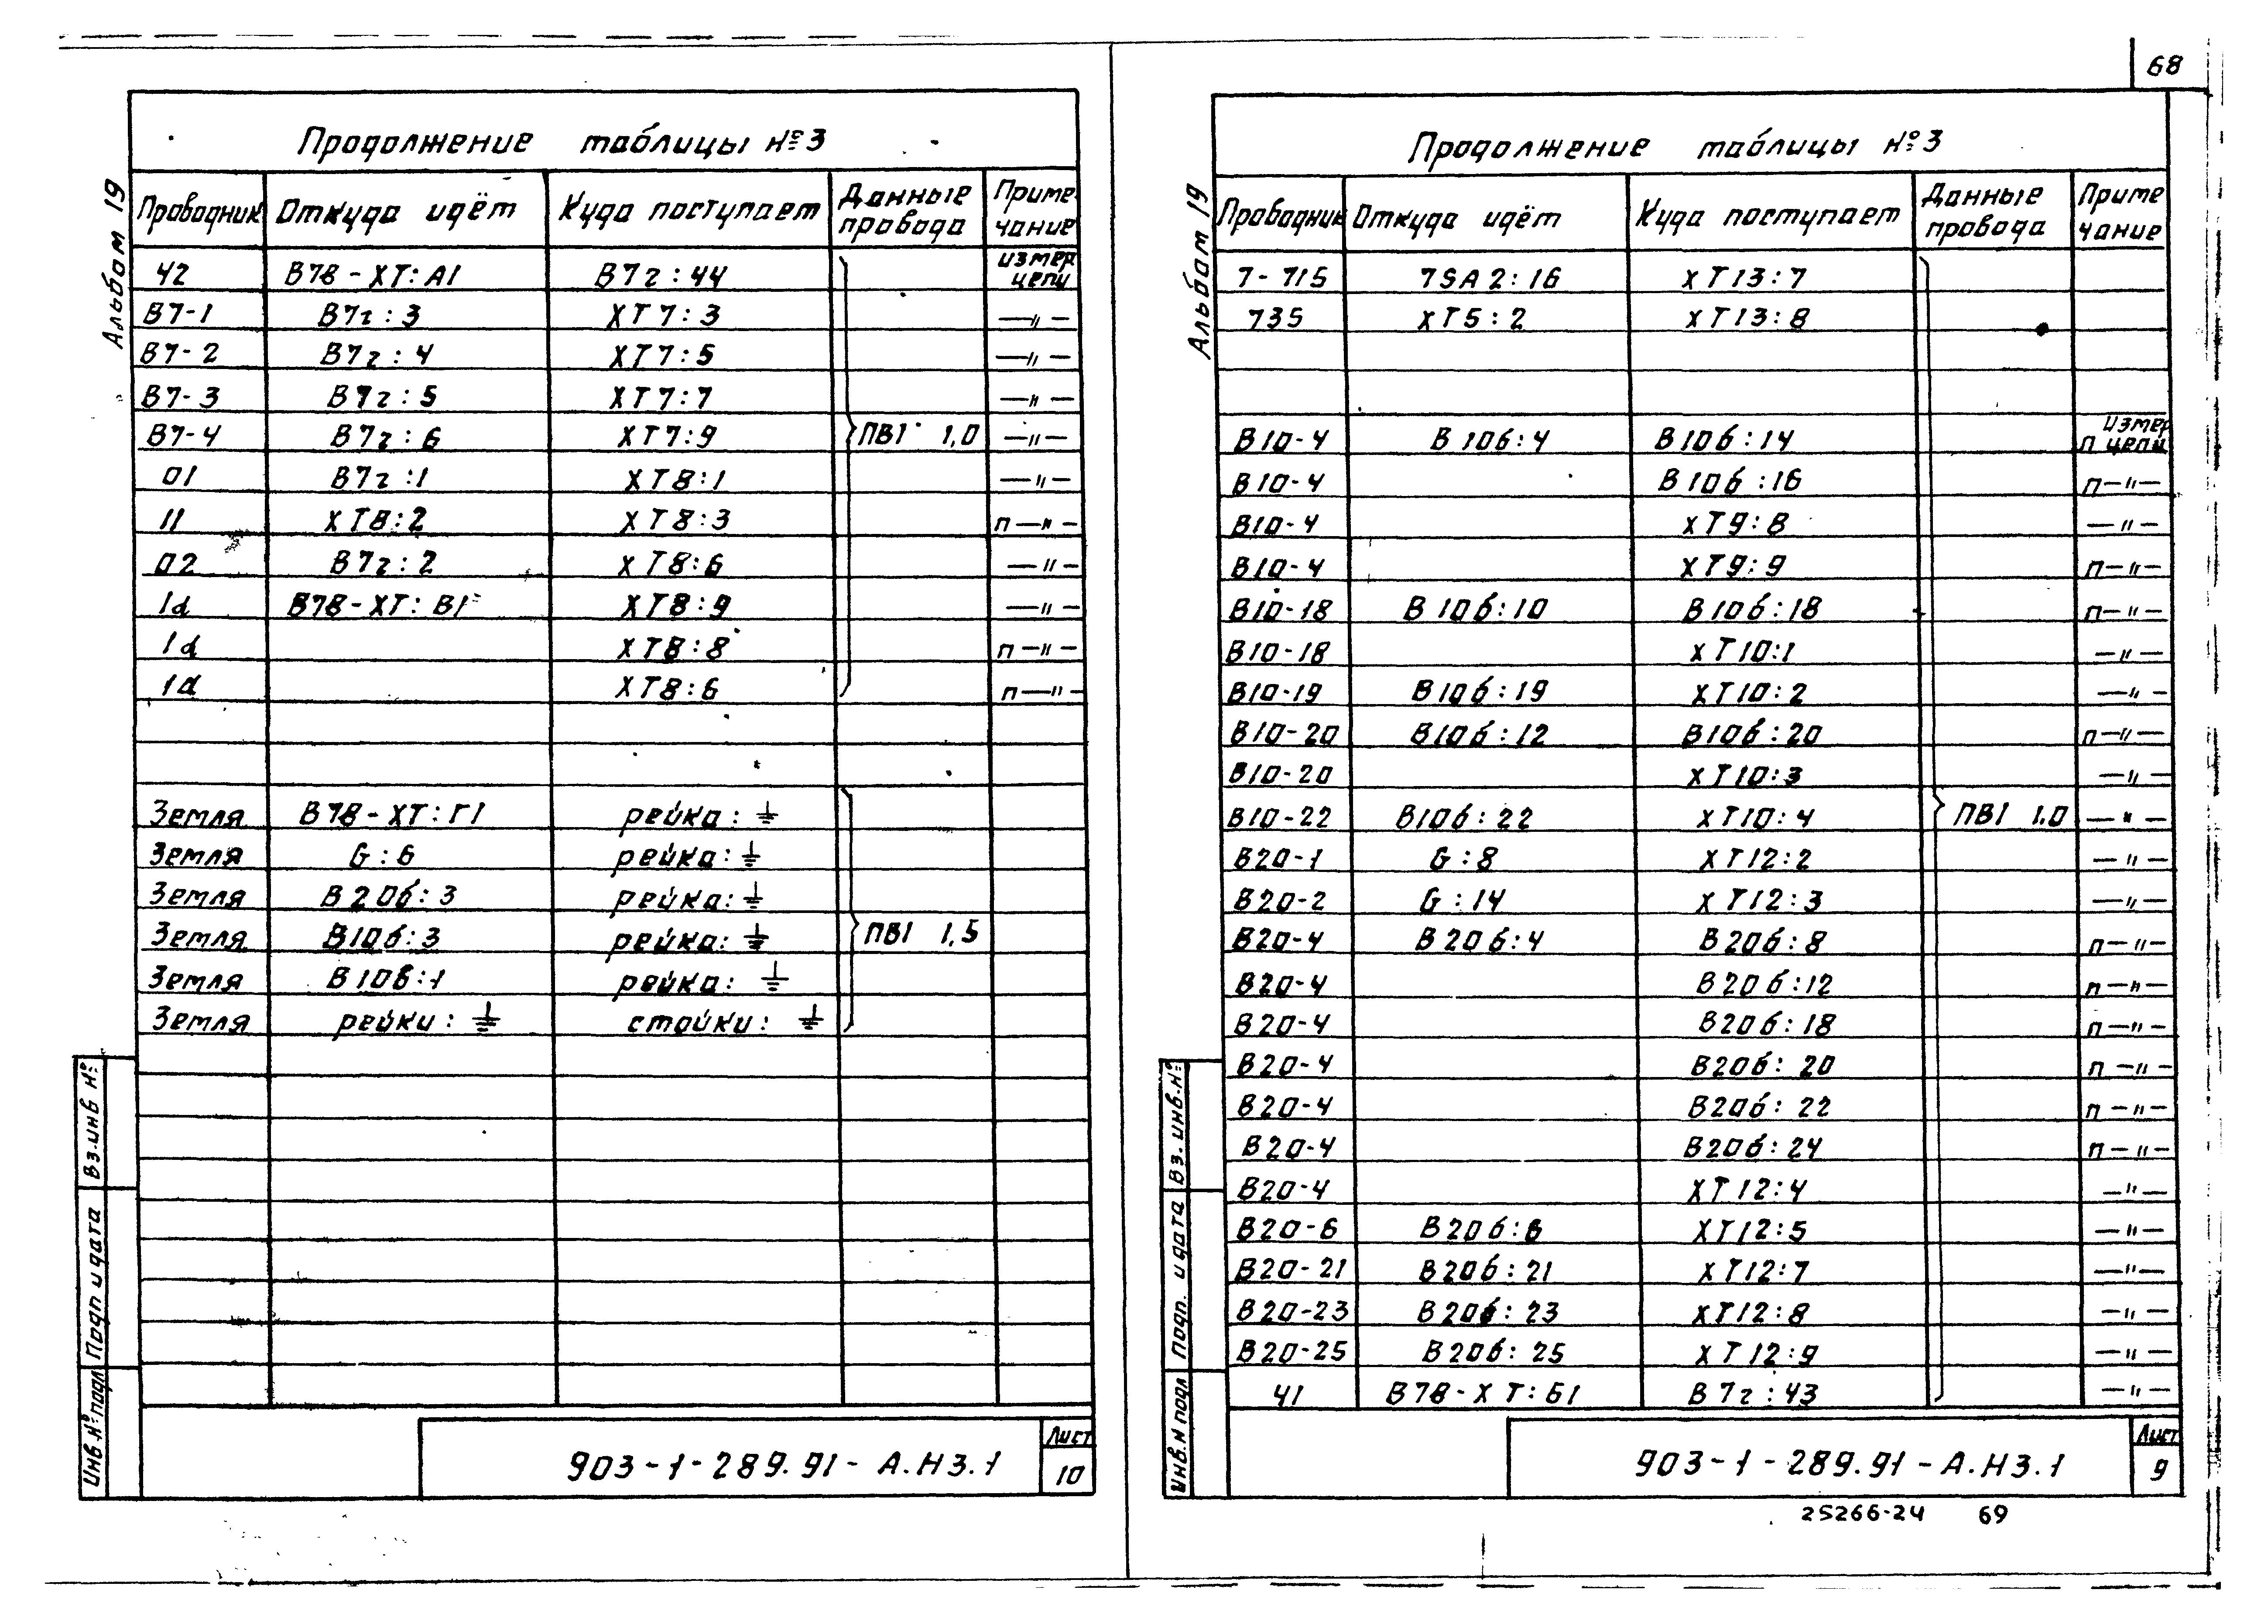 68
Альбом 19
Продолжение таблицы №3
Проводник Откуда идёт Куда поступает Данные провода Примечание
42 В7в-ХТ:А1 В7г:44 измер цепи
В7-1 В7г:3 ХТ7:3 —〃—
В7-2 В7г:4 ХТ7:5 —〃—
В7-3 В7г:5 ХТ7:7 —〃—
В7-4 В7г:6 ХТ7:9 ПВ1 1,0 —〃—
01 В7г:1 ХТ8:1 —〃—
11 ХТ8:2 ХТ8:3 п—〃—
02 В7г:2 ХТ8:6 —〃—
1d В7в-ХТ:В1 ХТ8:9 —〃—
1d ХТ8:8 п—〃—
1d ХТ8:6 п—〃—
Земля В7в-ХТ:Г1 рейка: ⏚
Земля G:6 рейка: ⏚
Земля В20б:3 рейка: ⏚
Земля В10б:3 рейка: ⏚ ПВ1 1,5
Земля В10в:1 рейка: ⏚
Земля рейки: ⏚ стойки: ⏚
Вз.инв №
Подп и дата
Инв.№ подл
903-1-289.91-А.НЗ.1
Лист
10
Альбом 19
Продолжение таблицы №3
Проводник Откуда идёт Куда поступает Данные провода Примечание
7-715 7SA2:16 ХТ13:7
735 ХТ5:2 ХТ13:8
В10-4 В10б:4 В10б:14 измер п цепи
В10-4 В10б:16 п—〃—
В10-4 ХТ9:8 —〃—
В10-4 ХТ9:9 п—〃—
В10-18 В10б:10 В10б:18 п—〃—
В10-18 ХТ10:1 —〃—
В10-19 В10б:19 ХТ10:2 —〃—
В10-20 В10б:12 В10б:20 п—〃—
В10-20 ХТ10:3 —〃—
В10-22 В10б:22 ХТ10:4 ПВ1 1.0 —〃—
В20-1 G:8 ХТ12:2 —〃—
В20-2 G:14 ХТ12:3 —〃—
В20-4 В20б:4 В20б:8 п—〃—
В20-4 В20б:12 п—〃—
В20-4 В20б:18 п—〃—
В20-4 В20б:20 п—〃—
В20-4 В20б:22 п—〃—
В20-4 В20б:24 п—〃—
В20-4 ХТ12:4 —〃—
В20-6 В20б:6 ХТ12:5 —〃—
В20-21 В20б:21 ХТ12:7 —〃—
В20-23 В20б:23 ХТ12:8 —〃—
В20-25 В20б:25 ХТ12:9 —〃—
41 В7в-ХТ:Б1 В7г:43 —〃—
Вз.инв.№
Подп. и дата
Инв.N подл
903-1-289.91-А.НЗ.1
Лист
9
25266-24 69